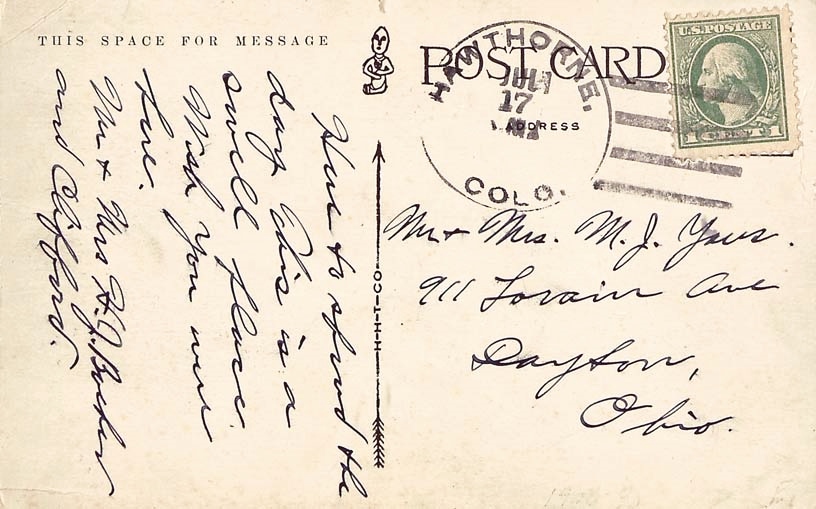 THIS SPACE FOR MESSAGE
Here to spend the
day. This is a
swell place.
Wish you were
here.
Mr & Mrs H. J.
and Clifford.
H-H-T-CO.
POST CARD
ADDRESS
HAWTHORNE,
JUL
17
COLO.
U.S. POSTAGE
1 1
Mr & Mrs. M. J.
911 Lorain Ave
Dayton,
Ohio.